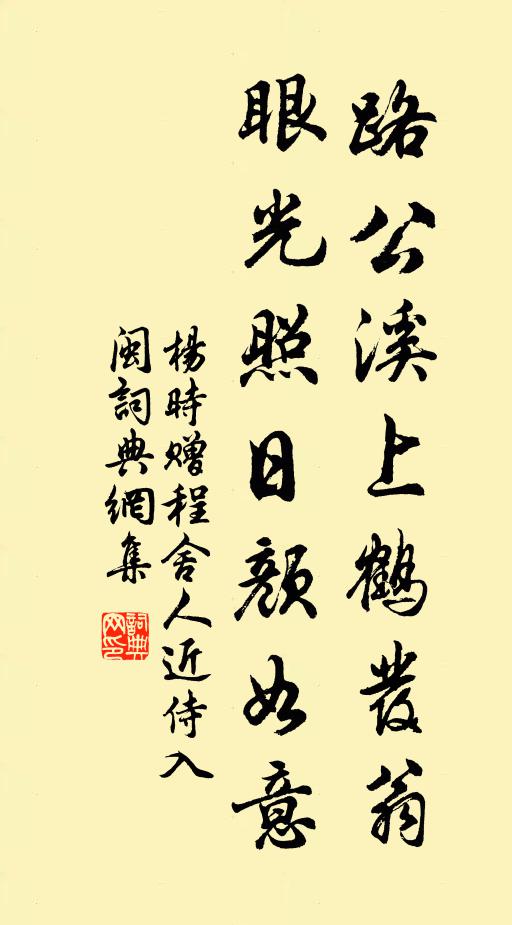 路公溪上鶴發翁
眼光照日顏如意
楊時贈程舍人近侍入
閩詞典網集
詞典網印